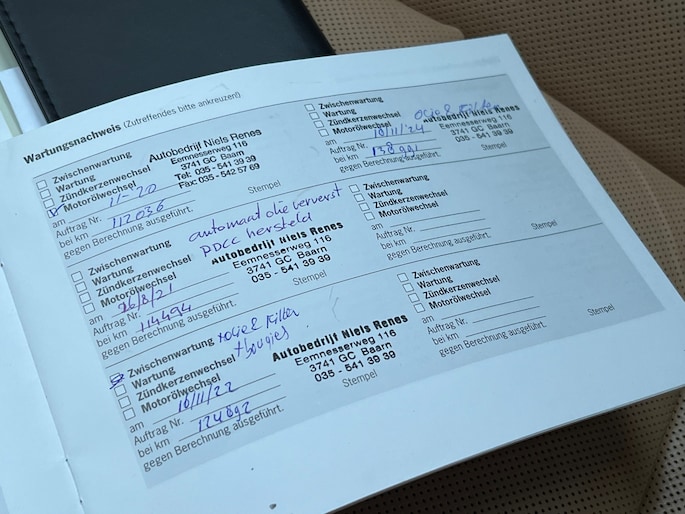 Wartungsnachweis (Zutreffendes bitte ankreuzen!)
Zwischenwartung
Wartung
Zündkerzenwechsel
Motorölwechsel
am 11-20
Auftrag Nr.
bei km 112036
gegen Berechnung ausgeführt.
Autobedrijf Niels Renes
Eemnesserweg 116
3741 GC Baarn
Tel: 035 - 541 39 39
Fax: 035 - 542 57 69
Stempel
Zwischenwartung
Wartung
Zündkerzenwechsel
Motorölwechsel
am 26/8/21
Auftrag Nr.
bei km 114494
gegen Berechnung ausgeführt.
automaat olie ververst
PDCC hersteld
Autobedrijf Niels Renes
Eemnesserweg 116
3741 GC Baarn
035 - 541 39 39
Stempel
Zwischenwartung
Wartung
Zündkerzenwechsel
Motorölwechsel
am 10/11/22
Auftrag Nr.
bei km 124892
gegen Berechnung ausgeführt.
+ bougies
Autobedrijf Niels Renes
Eemnesserweg 116
3741 GC Baarn
035 - 541 39 39
Stempel
Zwischenwartung
Wartung
Zündkerzenwechsel
Motorölwechsel
am
Auftrag Nr.
bei km
gegen Berechnung ausgeführt.
Autobedrijf Niels Renes
Eemnesserweg 116
3741 GC Baarn
035 - 541 39 39
Stempel
Zwischenwartung
Wartung
Zündkerzenwechsel
Motorölwechsel
am
Auftrag Nr.
bei km
gegen Berechnung ausgeführt.
Stempel
Zwischenwartung
Wartung
Zündkerzenwechsel
Motorölwechsel
am
Auftrag Nr.
bei km
gegen Berechnung ausgeführt.
Stempel